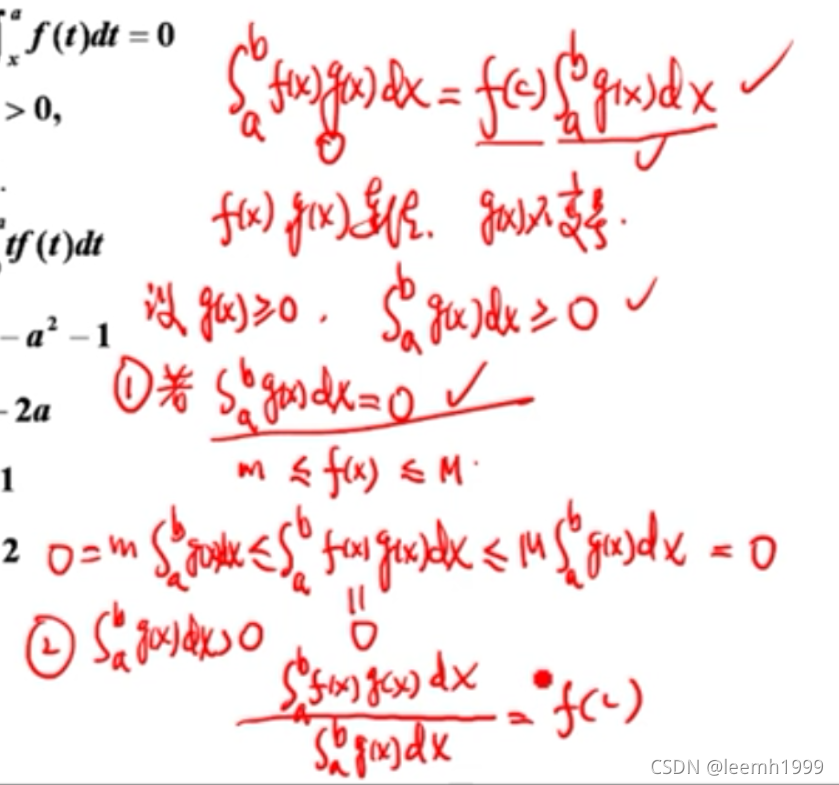 ∫ₓᵃ f(t)dt = 0
∫ₐᵇ f(x)g(x)dx = f(c)∫ₐᵇ g(x)dx ✓
0
✓
> 0,
f(x) g(x)连续. g(x)不变号.
tf(t)dt
设 g(x)≥0. ∫ₐᵇ g(x)dx ≥ 0 ✓
− a² − 1
① 若 ∫ₐᵇ g(x)dx = 0 ✓
- 2a
m ≤ f(x) ≤ M.
1
2
0 = m ∫ₐᵇ g(x)dx ≤ ∫ₐᵇ f(x)g(x)dx ≤ M ∫ₐᵇ g(x)dx = 0
=
0
② ∫ₐᵇ g(x)dx > 0
∫ₐᵇ f(x)g(x)dx / ∫ₐᵇ g(x)dx = f(c)
CSDN @leemh1999